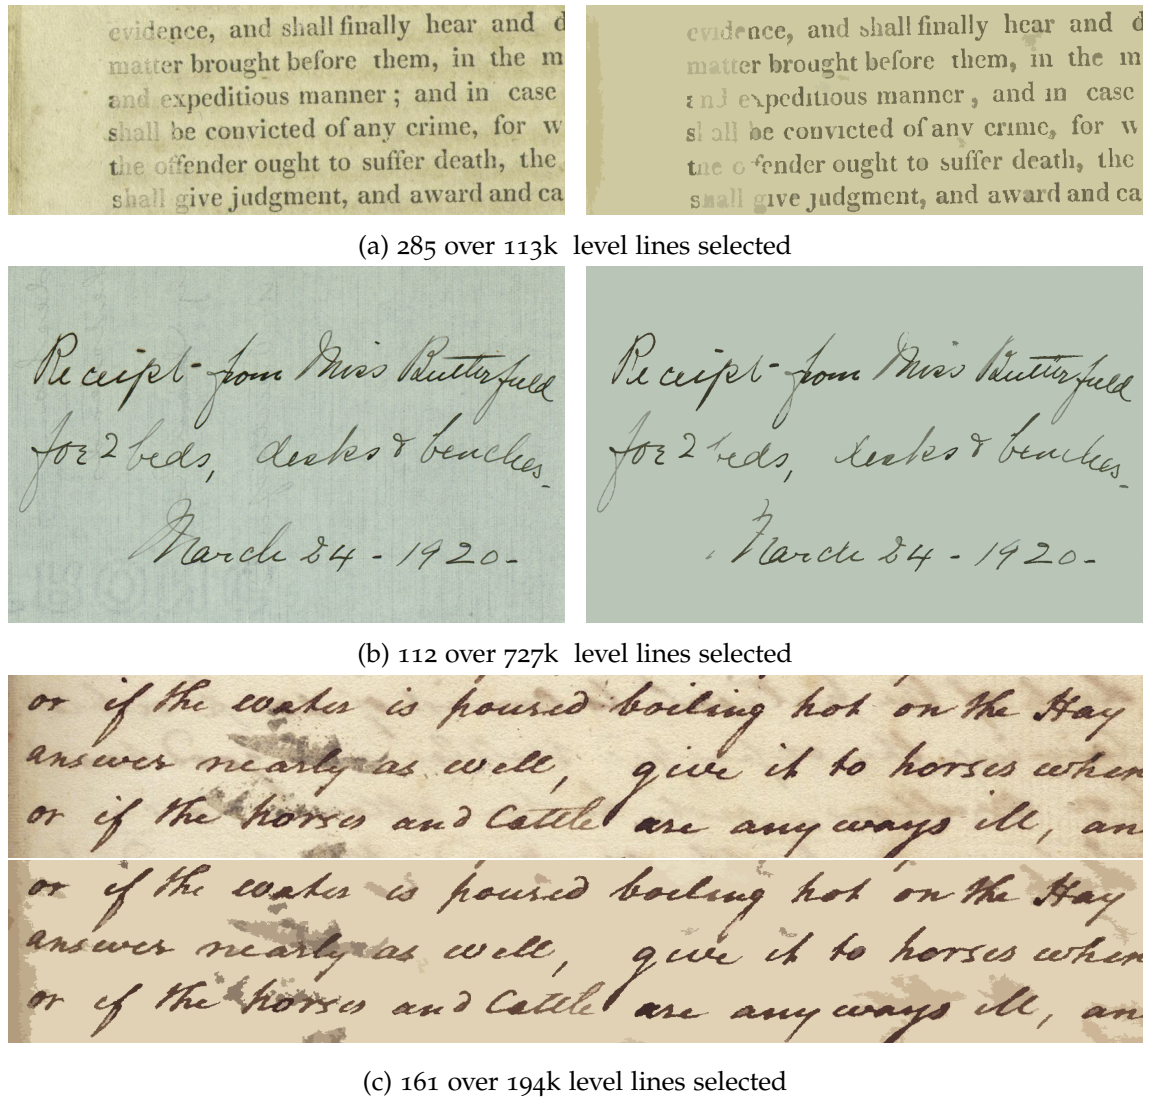 evidence, and shall finally hear and d
matter brought before them, in the m
and expeditious manner ; and in case
shall be convicted of any crime, for w
the offender ought to suffer death, the
shall give judgment, and award and ca
evidence, and shall finally hear and d
matter brought before them, in the m
and expeditious manner, and in case
shall be convicted of any crime, for w
the offender ought to suffer death, the
shall give judgment, and award and ca
(a) 285 over 113k level lines selected
Receipt from Miss Butterfield
for 2 beds, desks & benches.
March 24 - 1920.
Receipt from Miss Butterfield
for 2 beds, desks & benches.
March 24 - 1920.
(b) 112 over 727k level lines selected
or if the water is poured boiling hot on the Hay
answer nearly as well, give it to horses when
or if the horses and Cattle are any ways ill, an
or if the water is poured boiling hot on the Hay
answer nearly as well, give it to horses when
or if the horses and Cattle are any ways ill, an
(c) 161 over 194k level lines selected